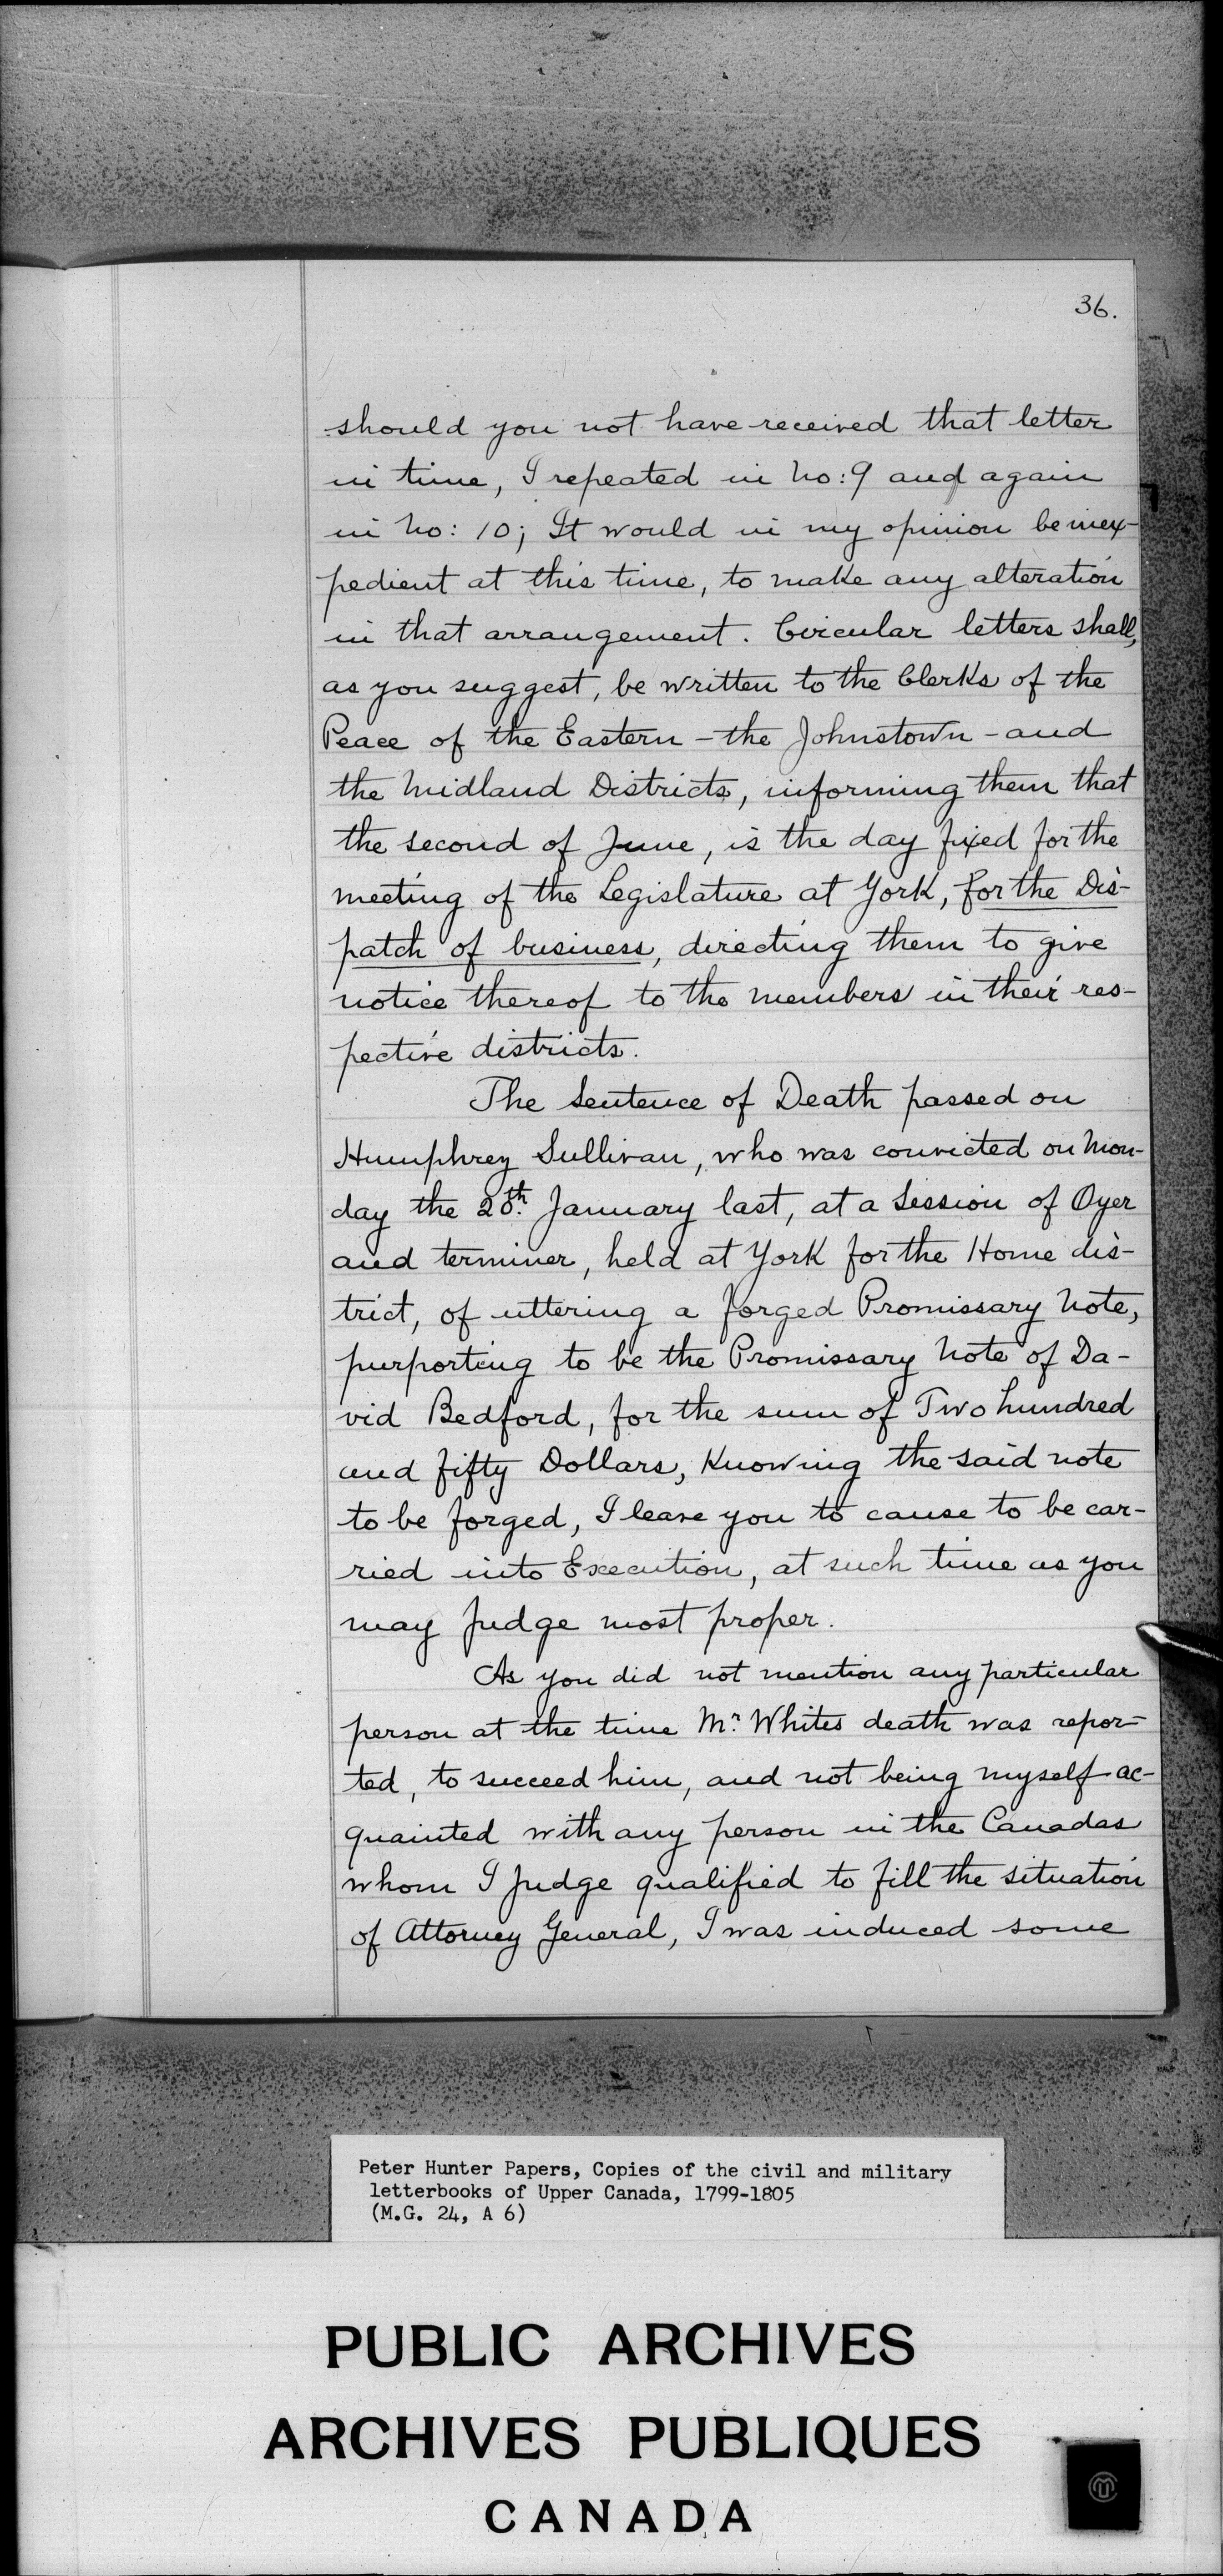 36.
should you not have received that letter
in time, I repeated in No: 9 and again
in No: 10; It would in my opinion be inex-
pedient at this time, to make any alteration
in that arrangement. Circular letters shall,
as you suggest, be written to the Clerks of the
Peace of the Eastern - the Johnstown - and
the Midland Districts, informing them that
the second of June, is the day fixed for the
meeting of the Legislature at York, for the Dis-
patch of business, directing them to give
notice thereof to the members in their res-
pective districts.
The Sentence of Death passed on
Humphrey Sullivan, who was convicted on Mon-
day the 28th. January last, at a Session of Oyer
and terminer, held at York for the Home dis-
trict, of uttering a forged Promissary Note,
purporting to be the Promissary Note of Da-
vid Bedford, for the sum of Two hundred
and fifty Dollars, Knowing the said note
to be forged, I leave you to cause to be car-
ried into Execution, at such time as you
may Judge most proper.
As you did not mention any particular
person at the time Mr. Whites death was repor-
ted, to succeed him, and not being myself ac-
quainted with any person in the Canadas
whom I Judge qualified to fill the situation
of Attorney General, I was induced some
Peter Hunter Papers, Copies of the civil and military
letterbooks of Upper Canada, 1799-1805
(M.G. 24, A 6)
PUBLIC ARCHIVES
ARCHIVES PUBLIQUES
CANADA